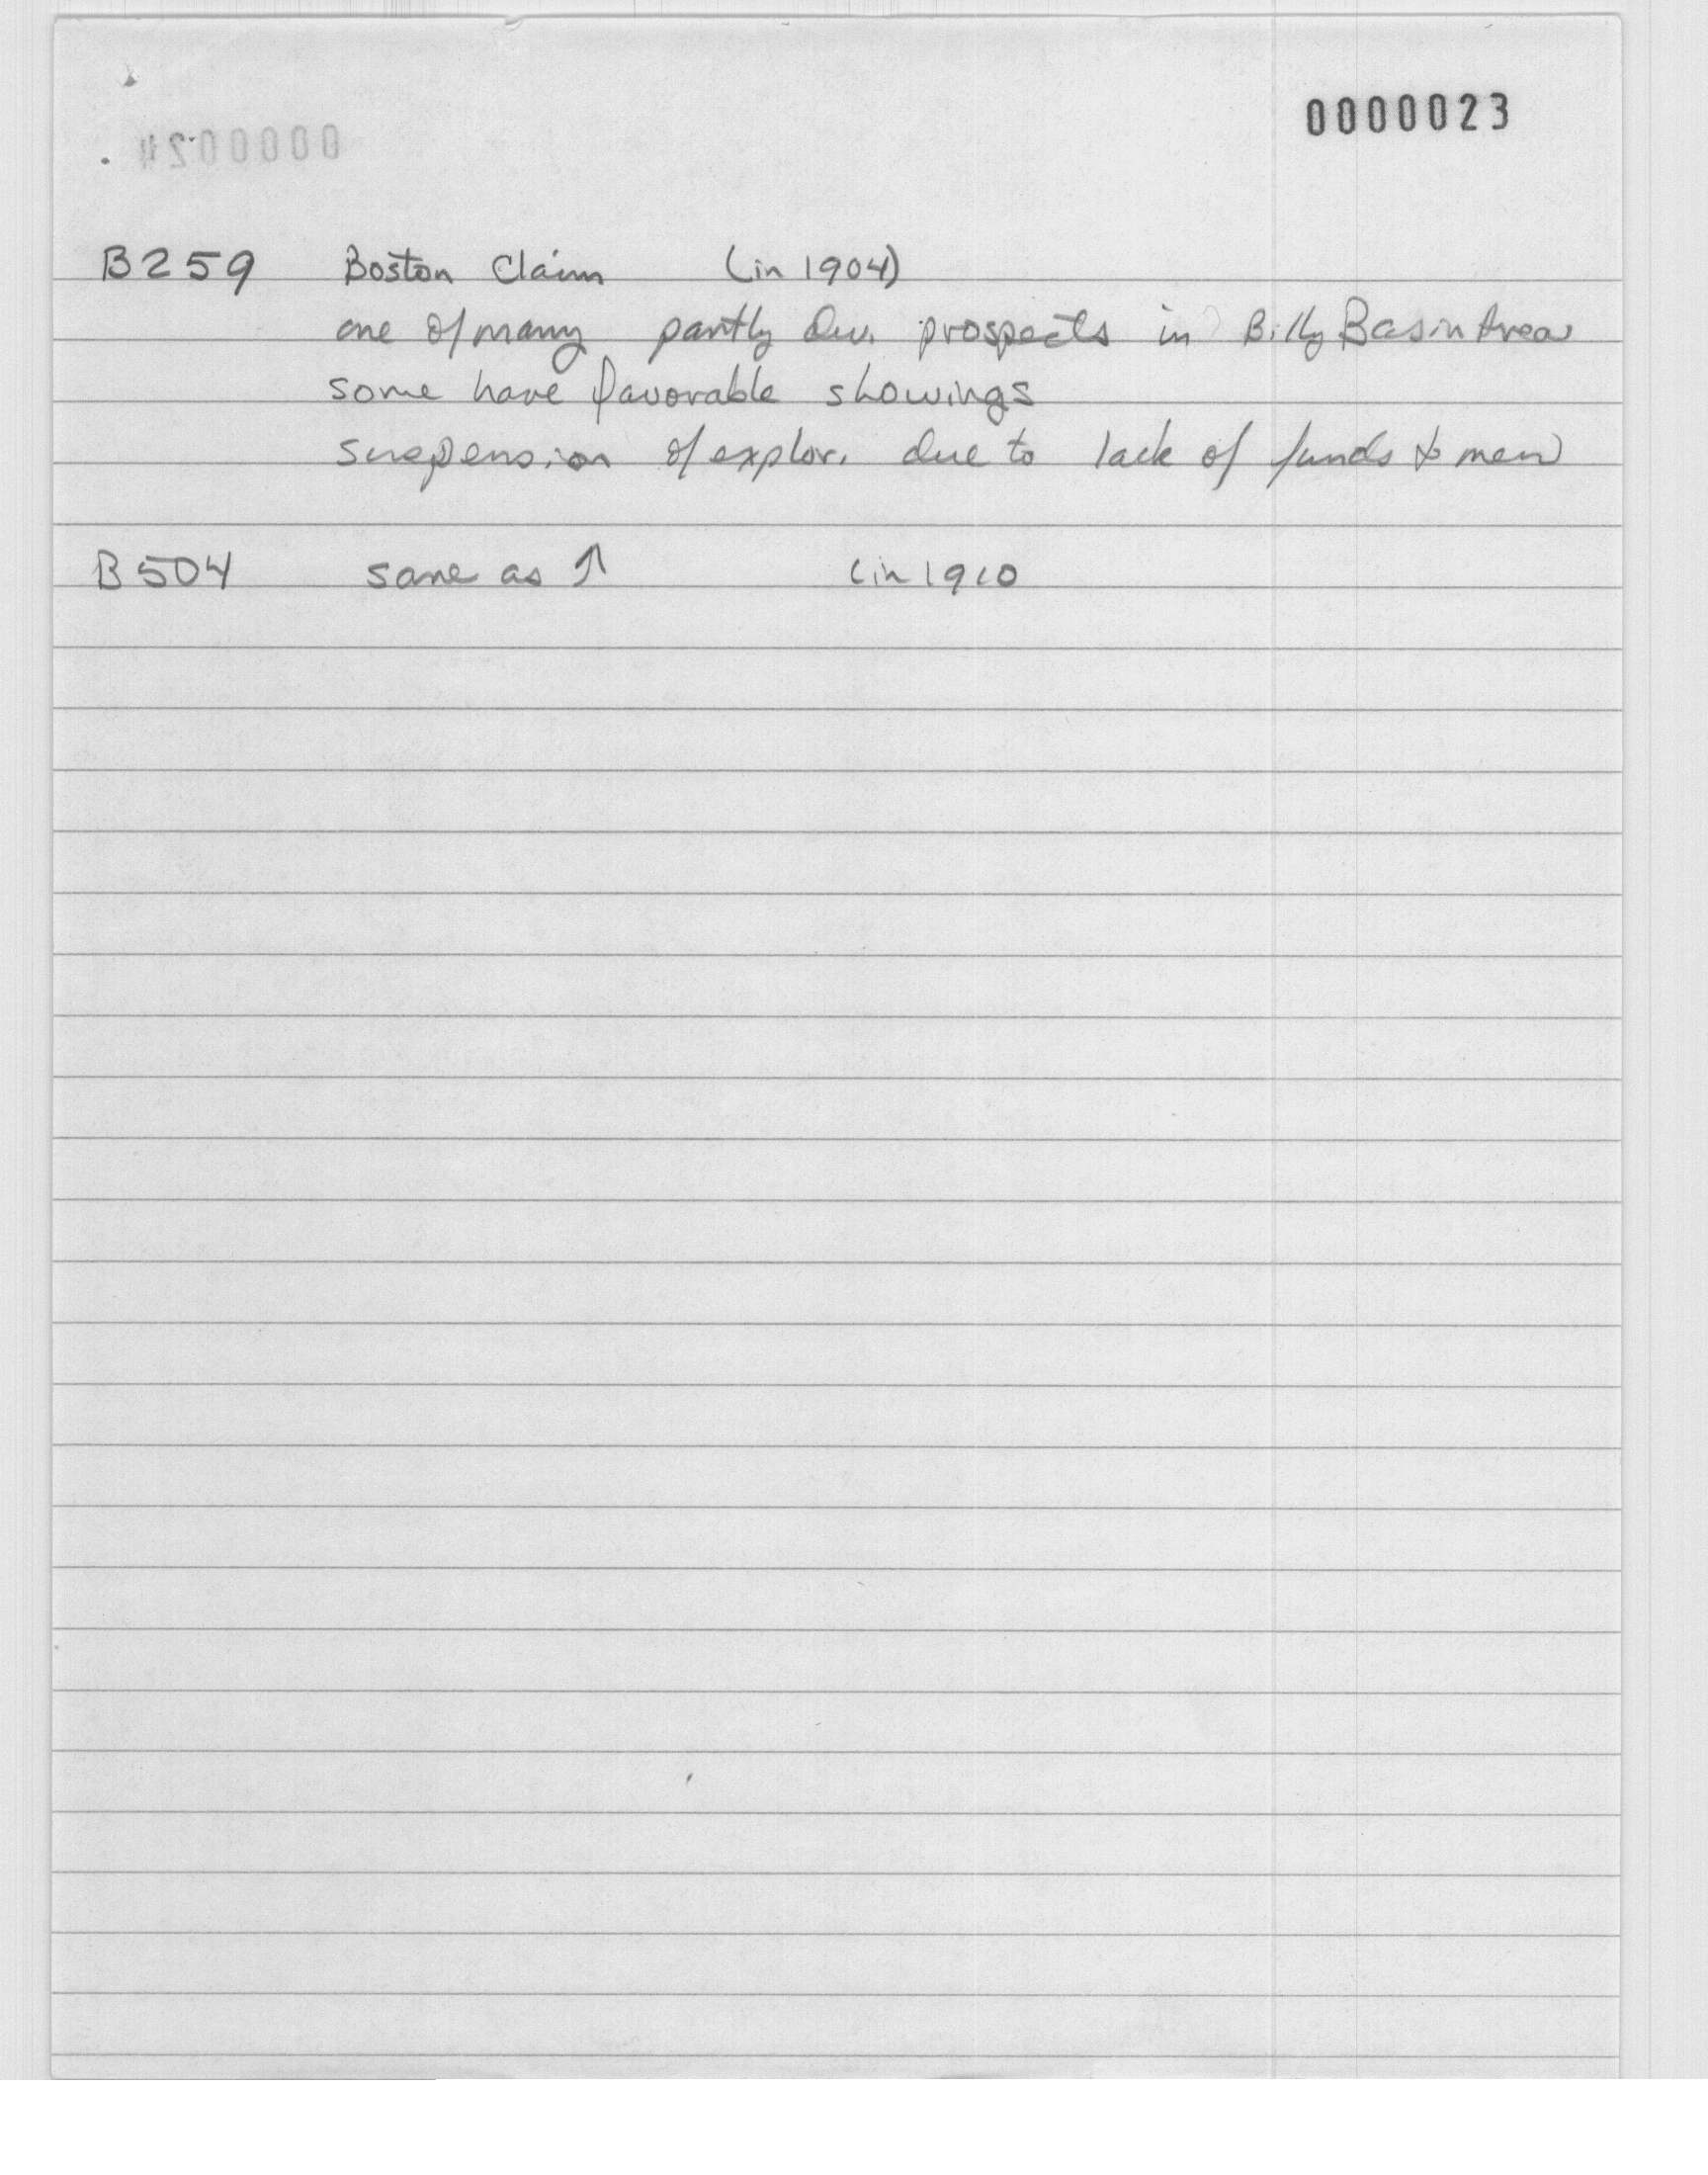 0000023
0000024
B259 Boston Claim (in 1904)
one of many partly dev. prospects in Billy Basin Area
some have favorable showings
suspension of explor. due to lack of funds & men
B504 same as ↑ (in 1910